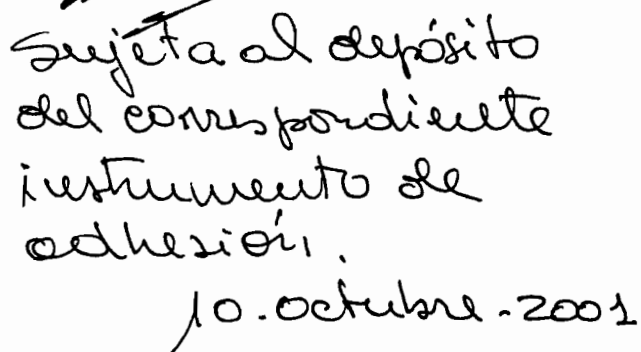 Sujeta al depósito
del correspondiente
instrumento de
adhesión.
10.octubre.-2001